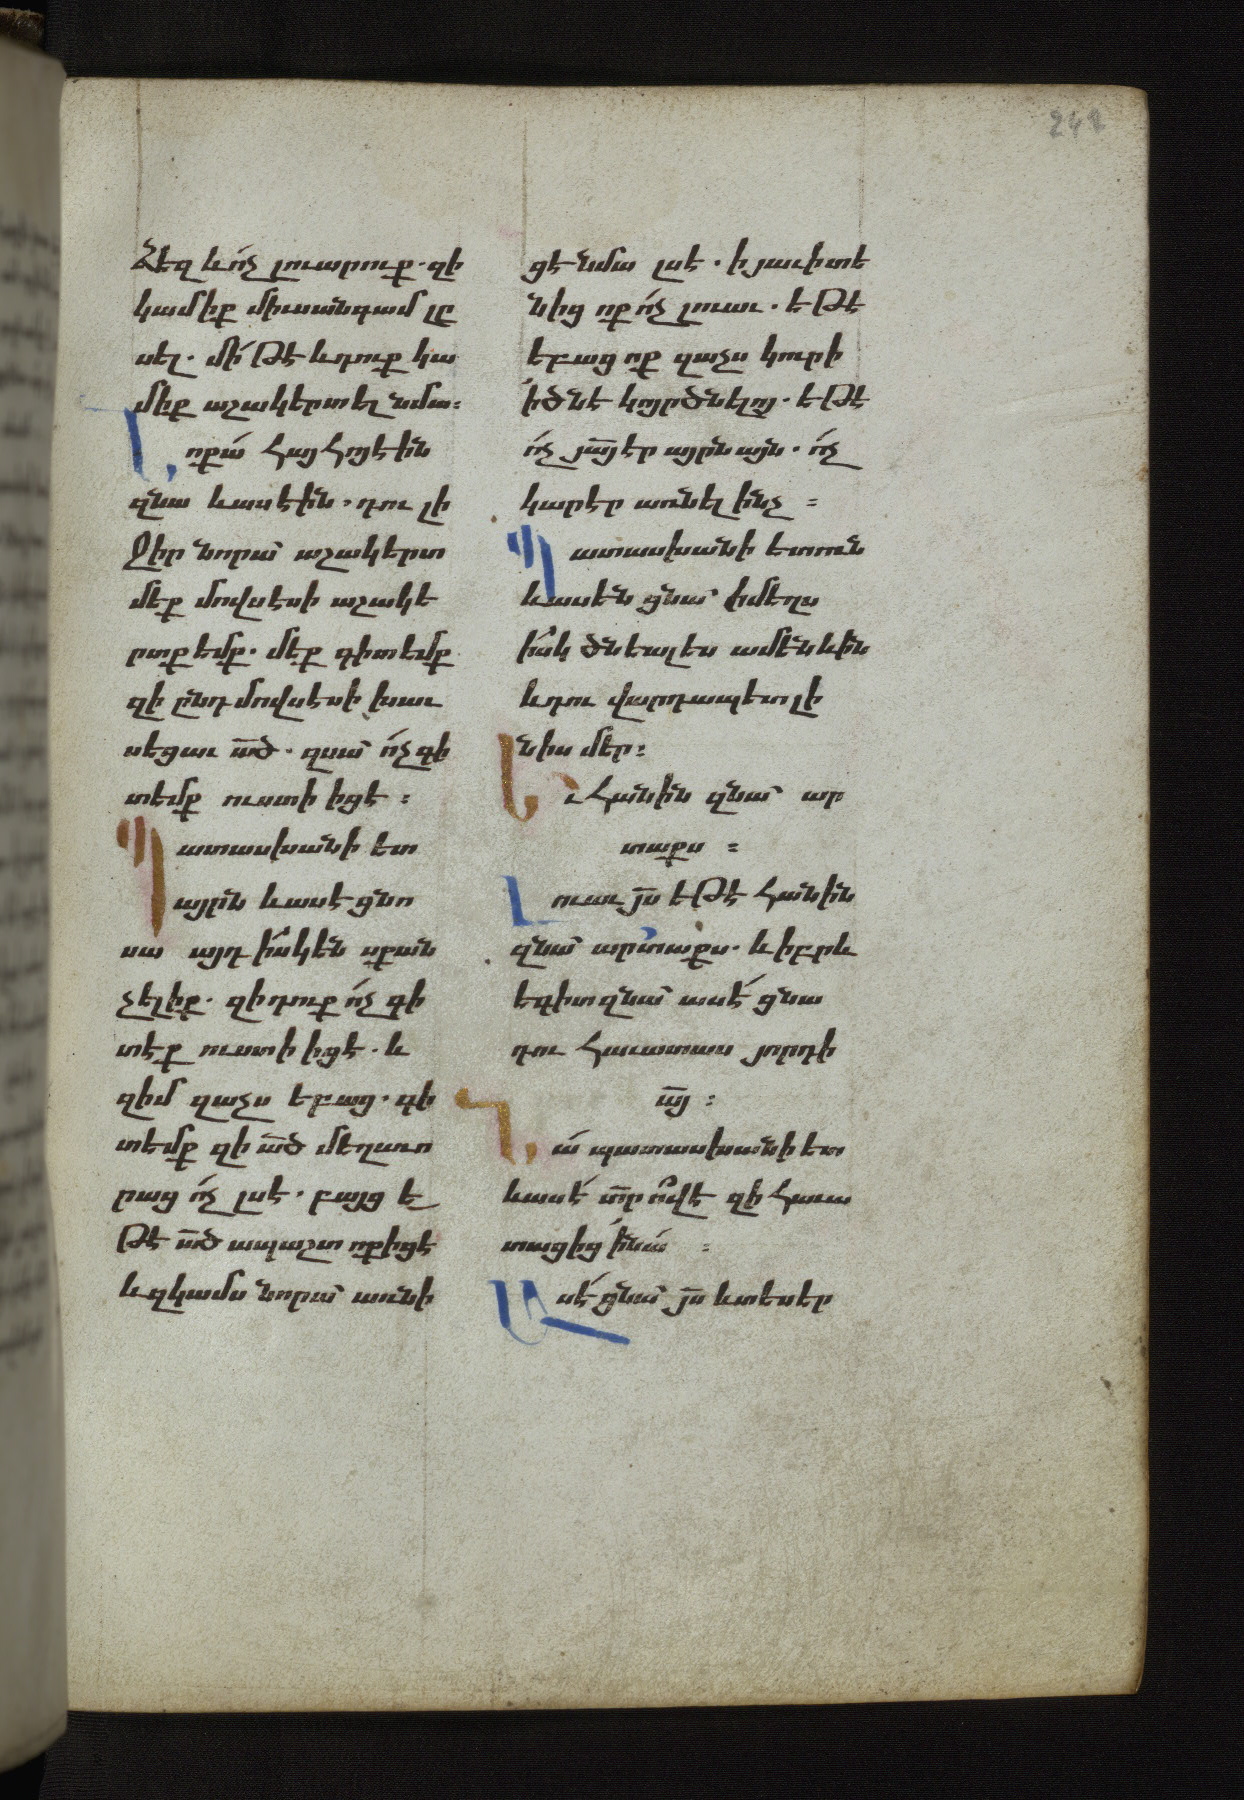 242
Ձեզ և ո՛չ լուարուք. զի
կամիք միւսանգամ լը
սել. մի՛ թէ և դուք կա
միք աշակերտել նմա:
Նոքա՛ հայհոյէին
զնա և ասէին. դու լի
ջիր նորա՛ աշակերտ
մեք մովսէսի աշակե
րտք եմք. մեք գիտեմք
զի ընդ մովսէսի խաւ
սեցաւ ա՟ծ. զսա՛ ո՛չ գի
տեմք ուստի իցէ :
Պատասխանի ետ
այրն և ասէ ցնո
սա այդ ի՛սկ են սքան
չելիք. զի դուք ո՛չ գի
տէք ուստի իցէ. և
զիմ զաչս եբաց. գի
տեմք զի ա՟ծ մեղաւո
րաց ո՛չ լսէ. բայց ե
թէ ա՟ծապաշտ ոք իցէ
և զկամս նորա՛ առնի
ցէ նմա լսէ. ի յաւիտե
նից ոք ո՛չ լուաւ. եթէ
եբաց ոք զաչս կուրի
ի ծնէ կոյր ծնելոյ. եթէ
ո՛չ յա՟յ էր այրն այն. ո՛չ
կարէր առնել ինչ :
Պատասխանի ետուն
և ասեն ցնա՛ ի մեղս
ի՛սկ ծնեալ ես ամենևին
և դու վարդապետ լի
նիս մեր:
Եւ հանին զնա՛ ար
տաքս :
Լուաւ յ՟ս եթէ հանին
զնա՛ արտաքս. և իբրև
եգիտ զնա՛ ասէ՛ ցնա
դու հաւատաս յորդի
ա՟յ :
Նա՛ պատասխանի ետ
և ասէ՛ տ՟ր ո՛վ է զի հաւա
տացից ի նա՛ :
Ասէ՛ ցնա՛ յ՟ս և տեսեր